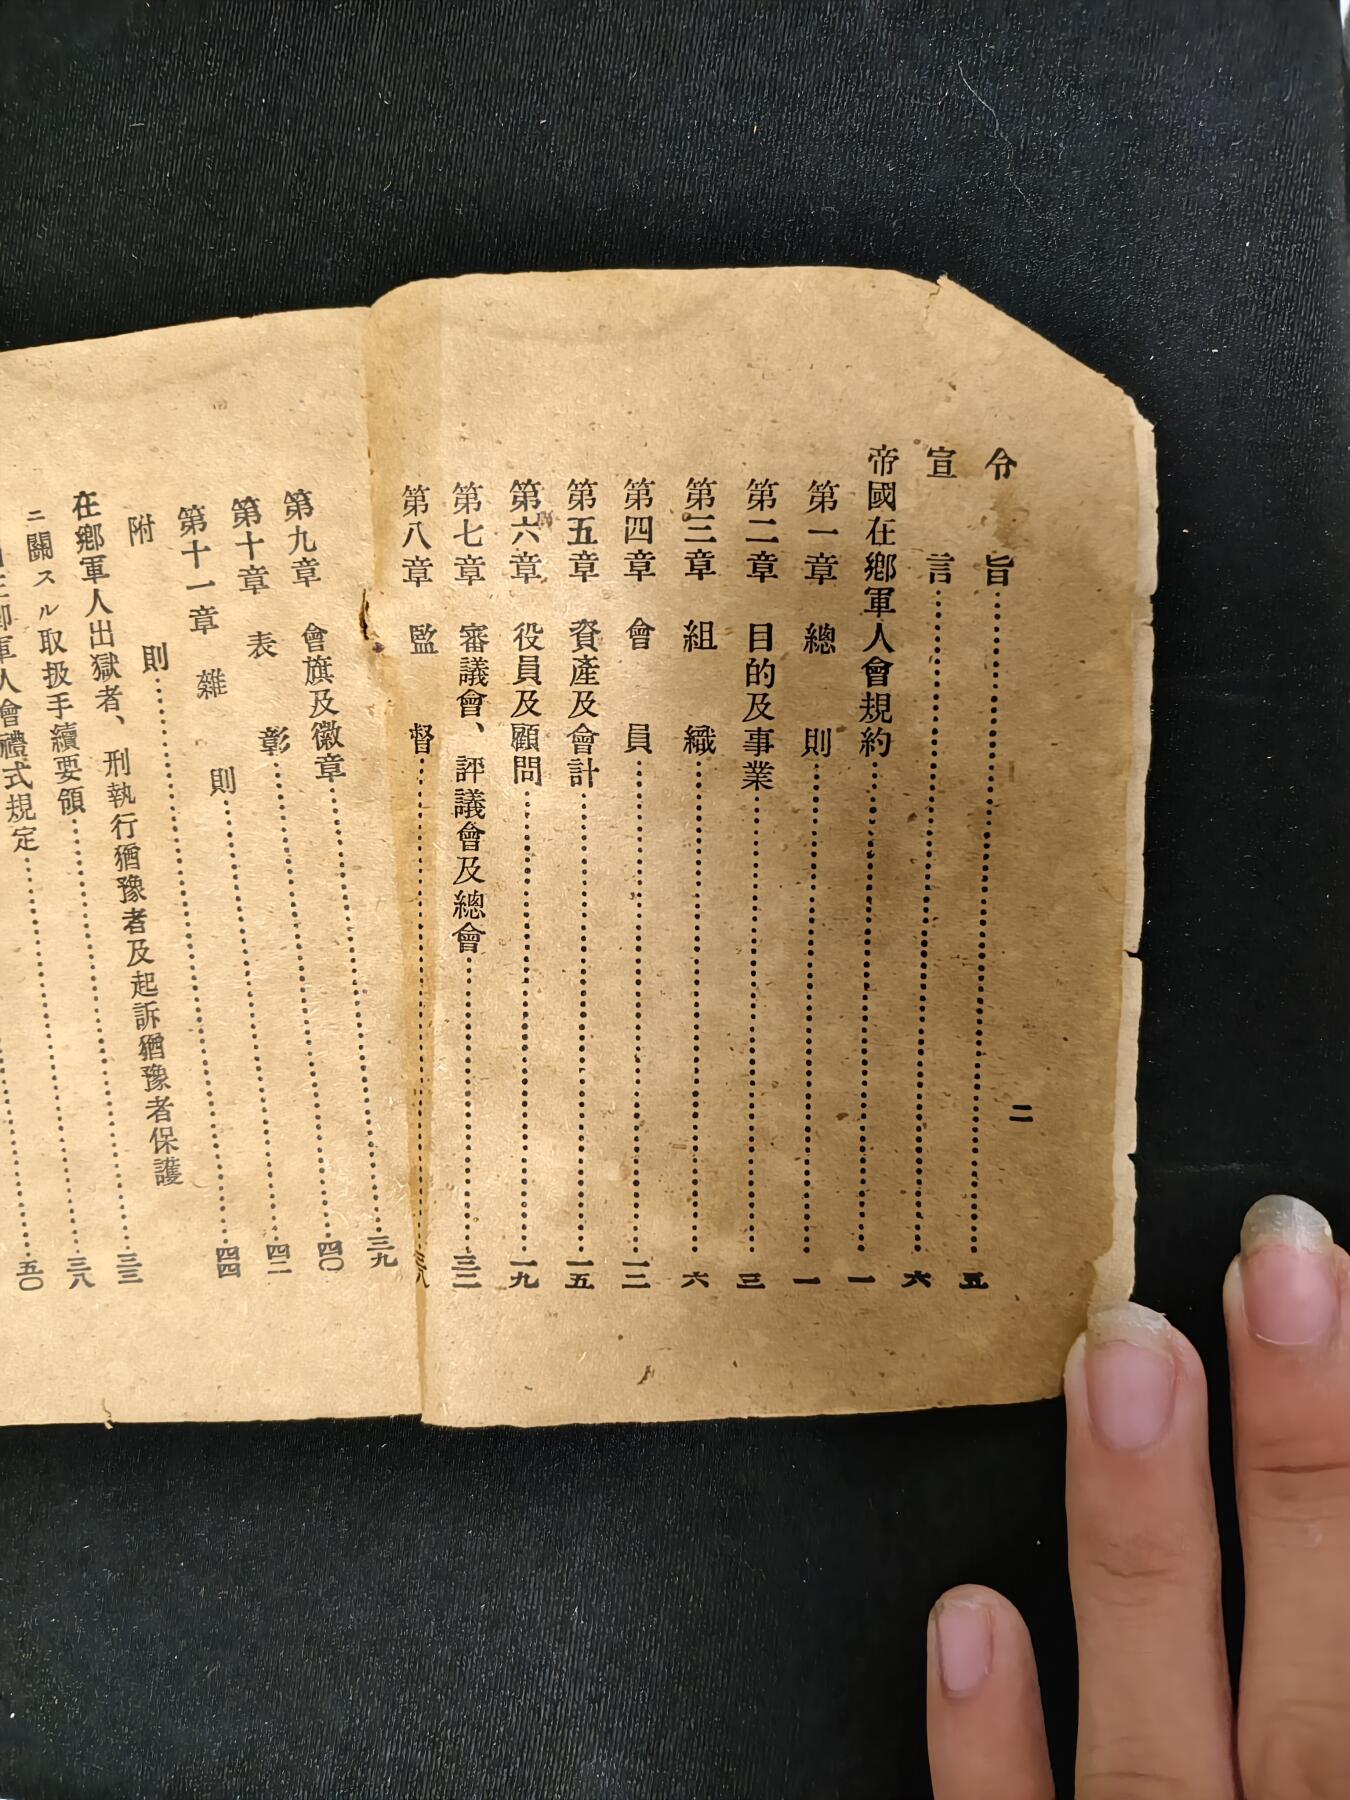 二
令旨……五
宣言……六
帝國在鄕軍人會規約……一
第一章 總則……一
第二章 目的及事業……三
第三章 組織……六
第四章 會員……一二
第五章 資產及會計……一五
第六章 役員及顧問……一九
第七章 審議會、評議會及總會……三二
第八章 監督……三八
第九章 會旗及徽章……三九
第十章 表彰……四〇
第十一章 雜則……四二
附則……四四
在鄕軍人出獄者、刑執行猶豫者及起訴猶豫者保護
ニ關スル取扱手續要領……三三
在鄕軍人會禮式規定……三八
……五〇